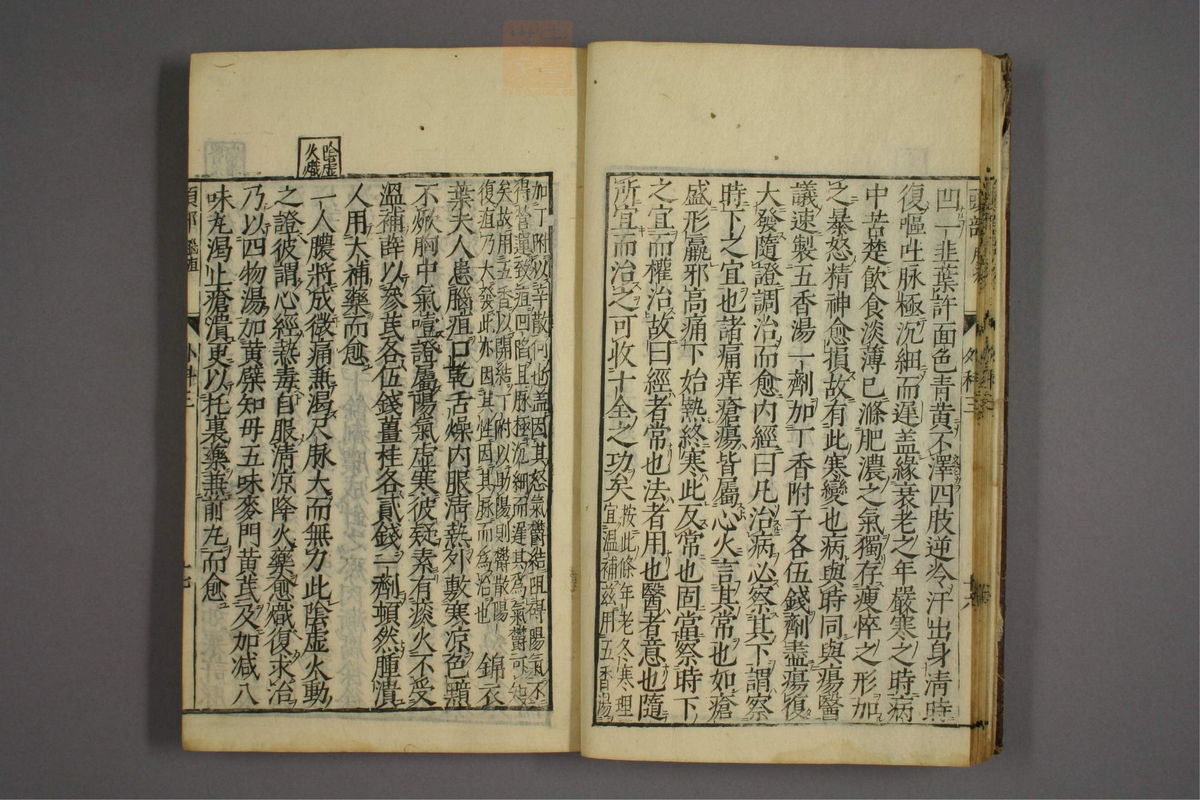 凹一韭葉許面色青黃不澤四肢逆冷汗出身清時
復嘔吐脉極沉細而遲盖緣衰老之年嚴寒之時病
中苦楚飲食淡薄已滌肥濃之氣獨存瘦悴之形加
之暴怒精神愈損故有此寒變也病與時同與瘍醫
議速製五香湯一劑加丁香附子各伍錢劑盡瘍復
大發隨證調治而愈内經曰凡治病必察其下謂察
時下之宜也諸痛痒瘡瘍皆屬心火言其常也如瘡
盛形羸邪高痛下始熱終寒此反常也固當察時下
之宜而權治故曰經者常也法者用也醫者意也隨
所宜而治之可收十全之功矣
按此條年老冬寒理
宜温補兹用五香湯
加丁附以辛散何也盖因其怒氣鬱結阻碍陽氣不
得營運致疽凹陷且脉極沉細而遲其爲氣鬱可知
矣故用五香以開結丁附以助陽則鬱散陽
復疽乃大發此亦因其性因其脉而爲治也
錦衣
葉夫人患腦疽口乾舌燥内服清熱外敷寒凉色黯
不焮胸中氣噎證屬陽氣虛寒彼疑素有痰火不受
溫補薛以參芪各伍錢薑桂各貳錢一劑頓然腫潰
人用大補藥而愈
陰虛
火熾
一人膿將成微痛兼渴尺脉大而無力此陰虛火動
之證彼謂心經熱毒自服清凉降火藥愈熾復求治
乃以四物湯加黃蘗知母五味麥門黃芪及加减八
味丸渴止瘡潰更以托裏藥兼前丸而愈
外科二
十六